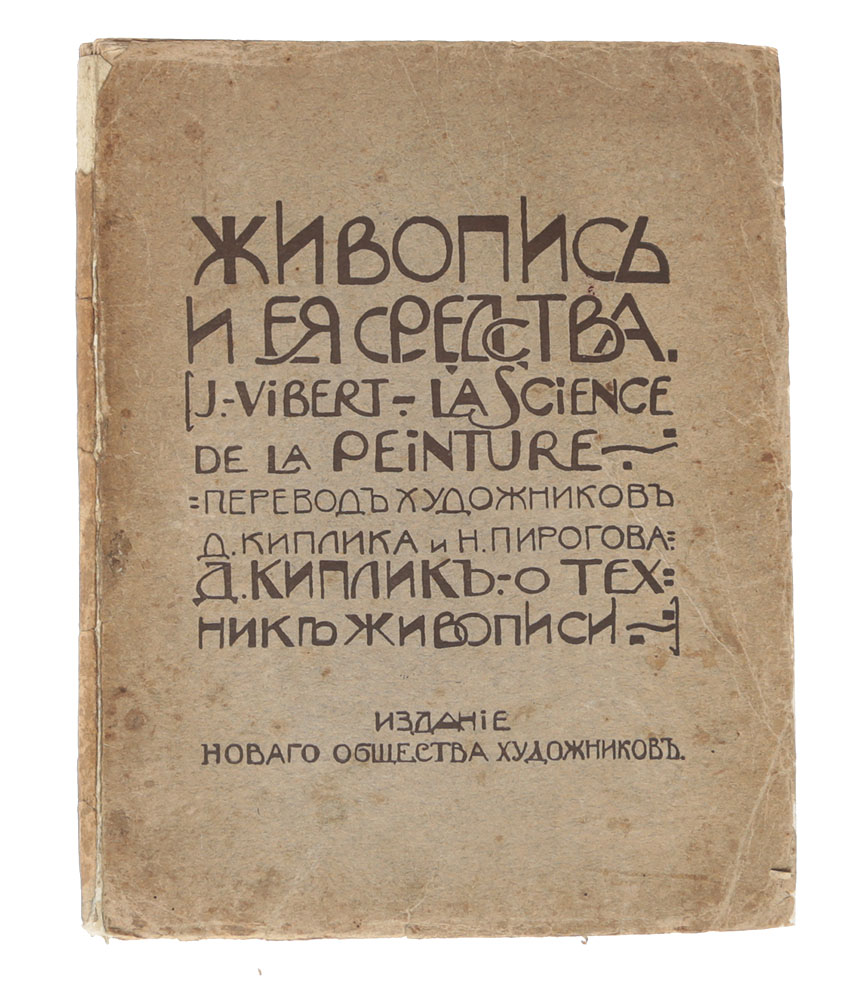 ЖИВОПИСЬ
И ЕЯ СРЕДСТВА.
[J.-VIBERT-LA SCIENCE
DE LA PEINTURE-
=ПЕРЕВОДЪ ХУДОЖНИКОВЪ
Д. КИПЛИКА и Н. ПИРОГОВА=
Д. КИПЛИКЪ-О ТЕХ=
НИКѢ ЖИВОПИСИ-]
ИЗДАНІЕ
НОВАГО ОБЩЕСТВА ХУДОЖНИКОВЪ.